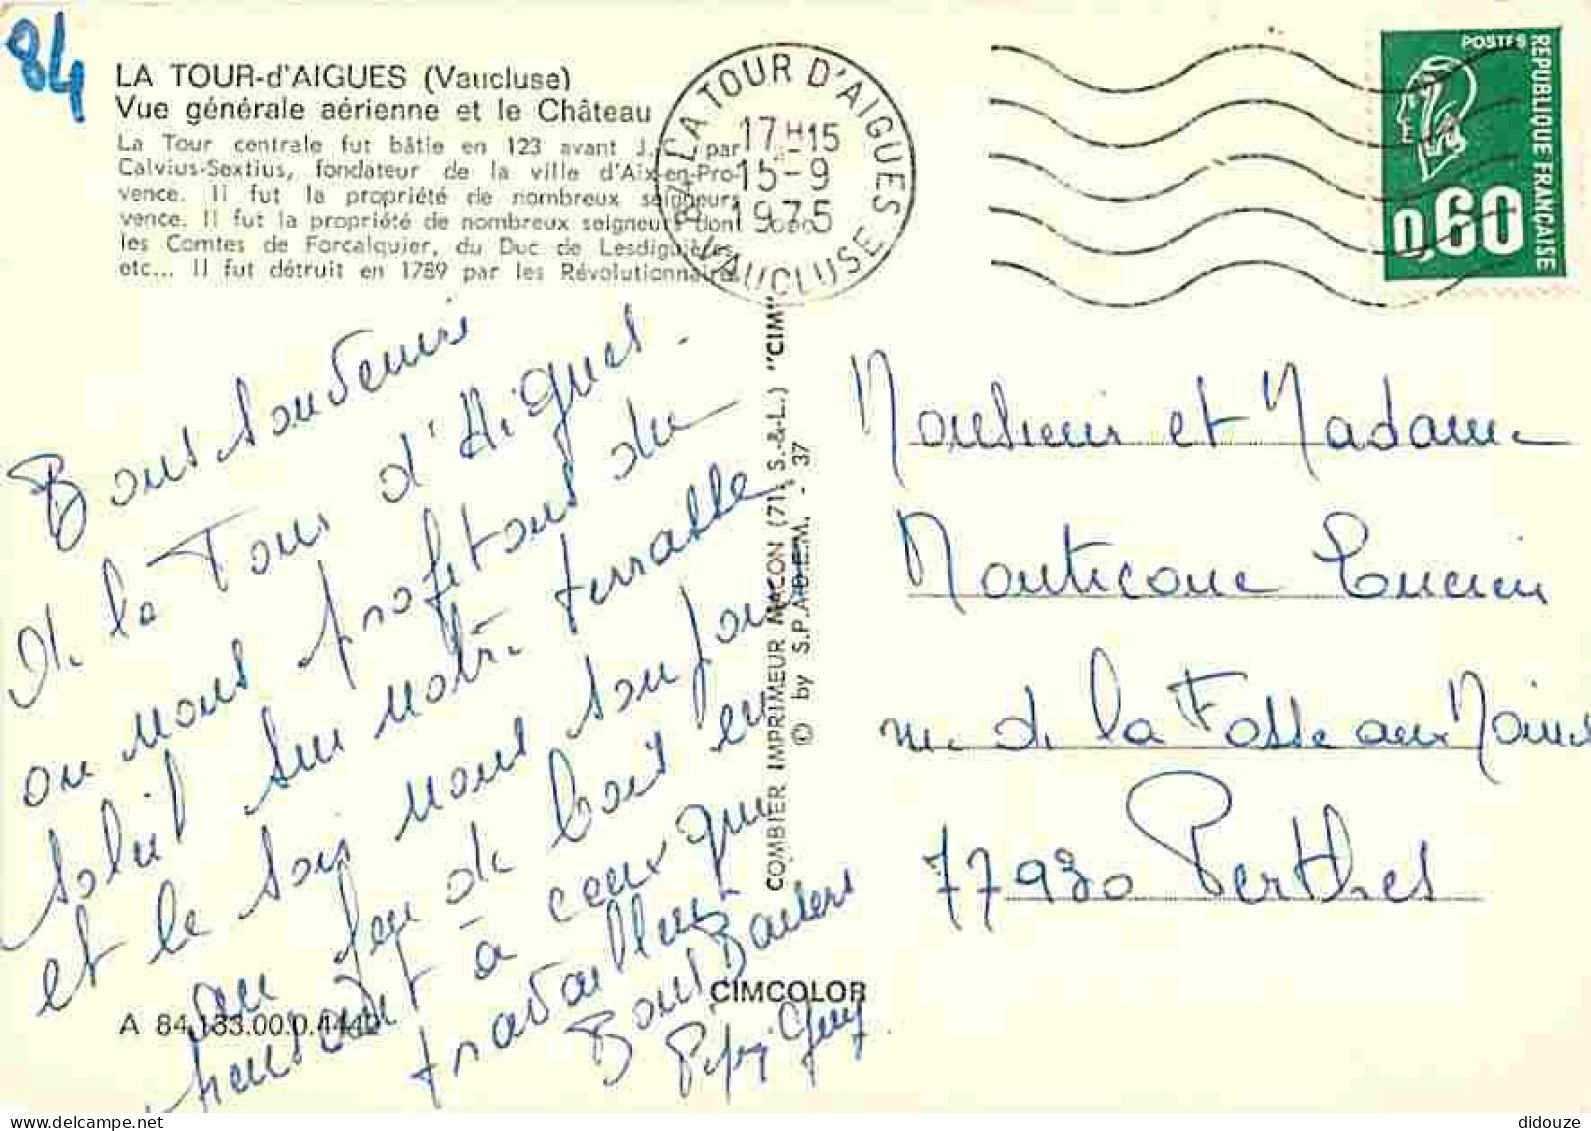 84
LA TOUR-d'AIGUES (Vaucluse)
Vue générale aérienne et le Château
La Tour centrale fut bâtie en 123 avant J.-C. par
Calvius-Sextius, fondateur de la ville d'Aix-en-Pro-
vence. Il fut la propriété de nombreux seigneurs
vence. Il fut la propriété de nombreux seigneurs dont
les Comtes de Forcalquier, du Duc de Lesdiguières,
etc... Il fut détruit en 1789 par les Révolutionnaires
LA TOUR D'AIGUES
17H15
15-9
1975
84 VAUCLUSE
POSTES
REPUBLIQUE FRANÇAISE
0,60
Bons souvenirs
de la Tour d'Aigues.
ou nous profitons du
soleil sur notre terrasse
et le soir nous sous
au feu de bois en
pensant à ceux qui
travaillent
Bons Baisers
COMBIER IMPRIMEUR MACON (71 S.-&-L.) "CIM"
© by S.P.A.D.E.M. - 37
Monsieur et Madame
Monticone Lucien
r. de la Fosse aux
77930 Perthes
CIMCOLOR
A 84.133.00.0.4440
hippostcard.com
didouze